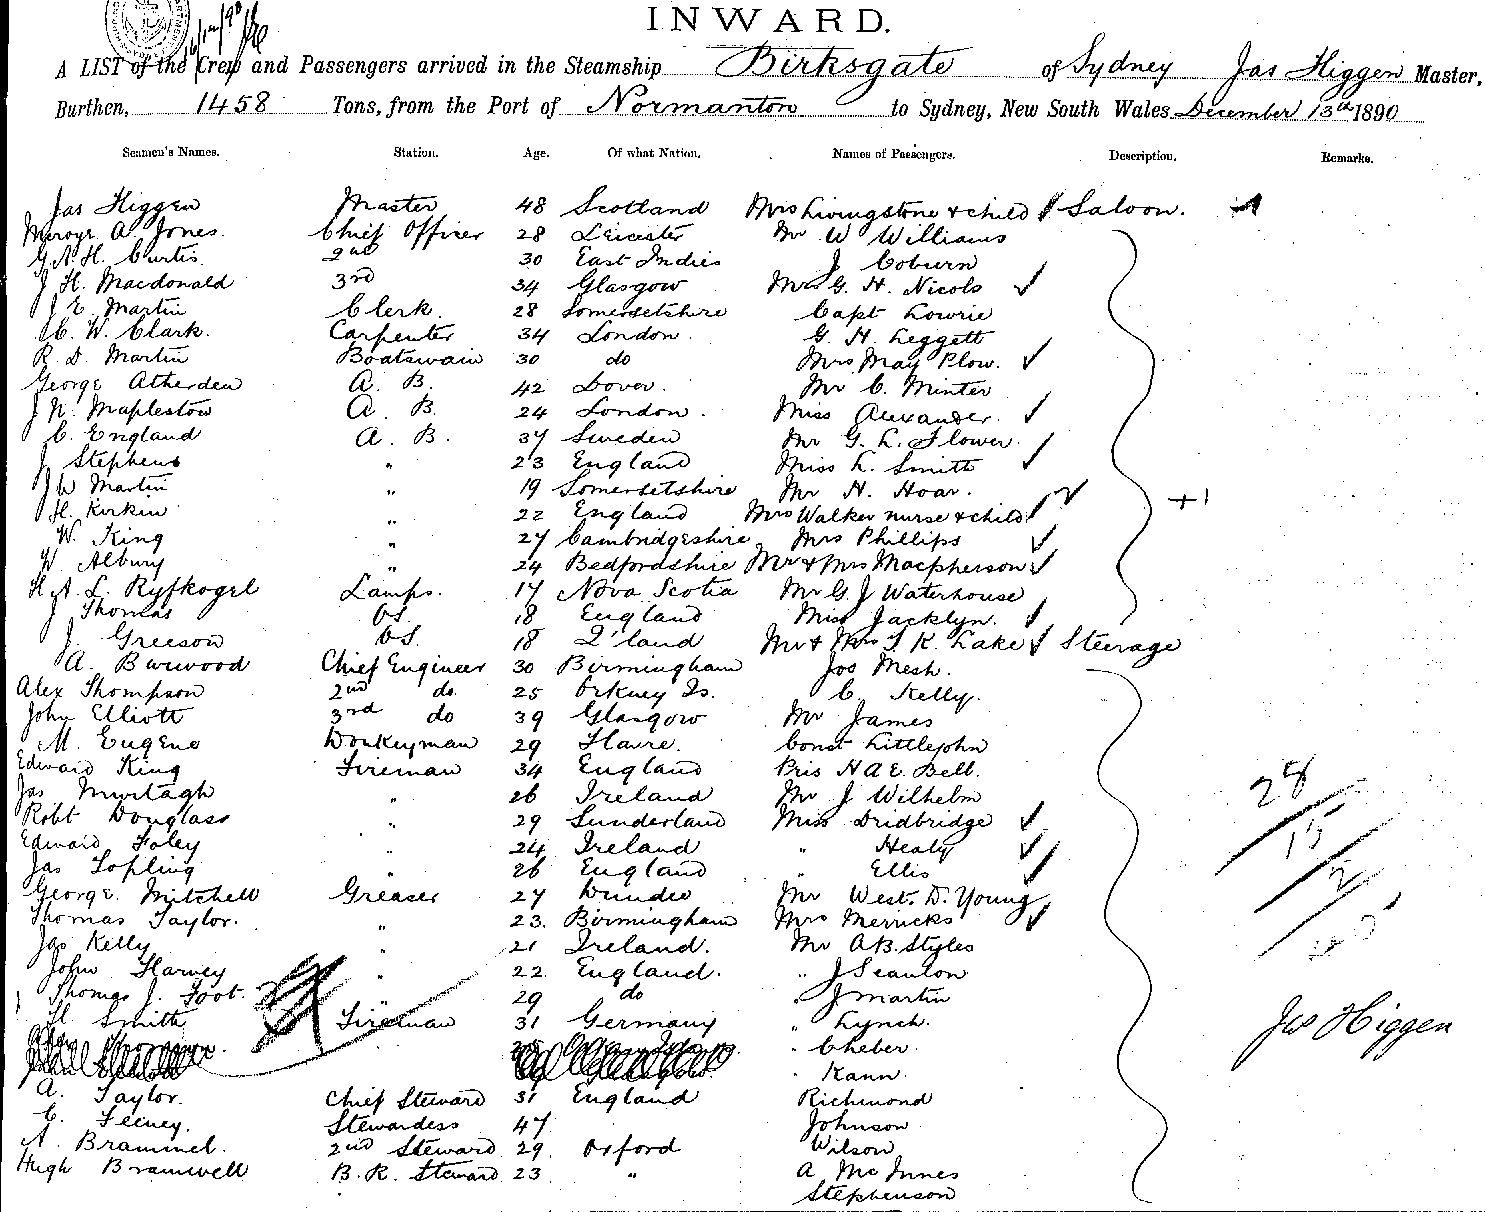 INWARD.
A LIST of the Crew and Passengers arrived in the Steamship Birksgate of Sydney Jas Higgen Master,
Burthen, 1458 Tons, from the Port of Normanton to Sydney, New South Wales December 13th 1890
Seamen's Names. Station. Age. Of what Nation. Names of Passengers. Description. Remarks.
Jas Higgen Master 48 Scotland Mrs Livingstone & child Saloon.
A. Jones Chief Officer 28 Leicester Mr W Williams
G. A. H. Curtis 2nd 30 East Indies J Coburn
J H. Macdonald 3rd 34 Glasgow Mrs G. H. Nicols
J E. Martin Clerk. 28 Somersetshire Capt Lowrie
C. W. Clark. Carpenter 34 London. G. H. Leggett
R. D. Martin Boatswain 30 do Mrs May Plow.
George Atherden A. B. 42 Dover. Mr C. Minter
J N. Maplestow A. B. 24 London. Miss Alexander.
C. England A. B. 37 Sweden Mr G. L. Flower.
J Stephens " 23 England Miss L. Smith
J W Martin " 19 Somersetshire Mr H. Hoar.
H. Kirkin " 22 England Mrs Walker nurse & child + 1
W. King " 27 Cambridgeshire Mrs Phillips
W. Albury " 24 Bedfordshire Mr & Mrs Macpherson
H. A. L. Ryfkogel Lamps. 17 Nova Scotia Mr G. J Waterhouse
J Thomas OS. 18 England Miss Jacklyn.
J. Greeson OS. 18 Q'land Mr & Mrs T. K. Lake Steerage
A. Burwood Chief Engineer 30 Birmingham Jos Mesh.
Alex Thompson 2nd do. 25 Orkney Is. C. Kelly.
John Elliott 3rd do 39 Glasgow Mr James
M. Eugene Donkeyman 29 Havre. Const Littlejohn
Edward King Fireman 34 England Pris H A E. Bell.
Jas Murtagh " 26 Ireland Mr J Wilhelm 28
Robt Douglass " 29 Sunderland Miss Dridbridge
Edward Foley " 24 Ireland " Healy 15
Jas Topling " 26 England " Ellis 2
George Mitchell Greaser 27 Dundee Mr West. D. Young
Thomas Taylor. " 23. Birmingham Mrs Merricks
Jas Kelly " 21 Ireland. Mr A B. Styles
John Harvey " 22 England. " J Scanlon
Thomas J. Foot. " 29 do " J Martin
H Smith Fireman 31 Germany " Lynch. Jas Higgen
" Cheber.
" Kann.
A. Taylor. Chief Steward 31 England Richmond
C. Feeney. Stewardess 47 Johnson
A. Brammel. 2nd Steward 29. Oxford Wilson
Hugh Bramwell B. R. Steward 23 " A McInnes
Stephenson